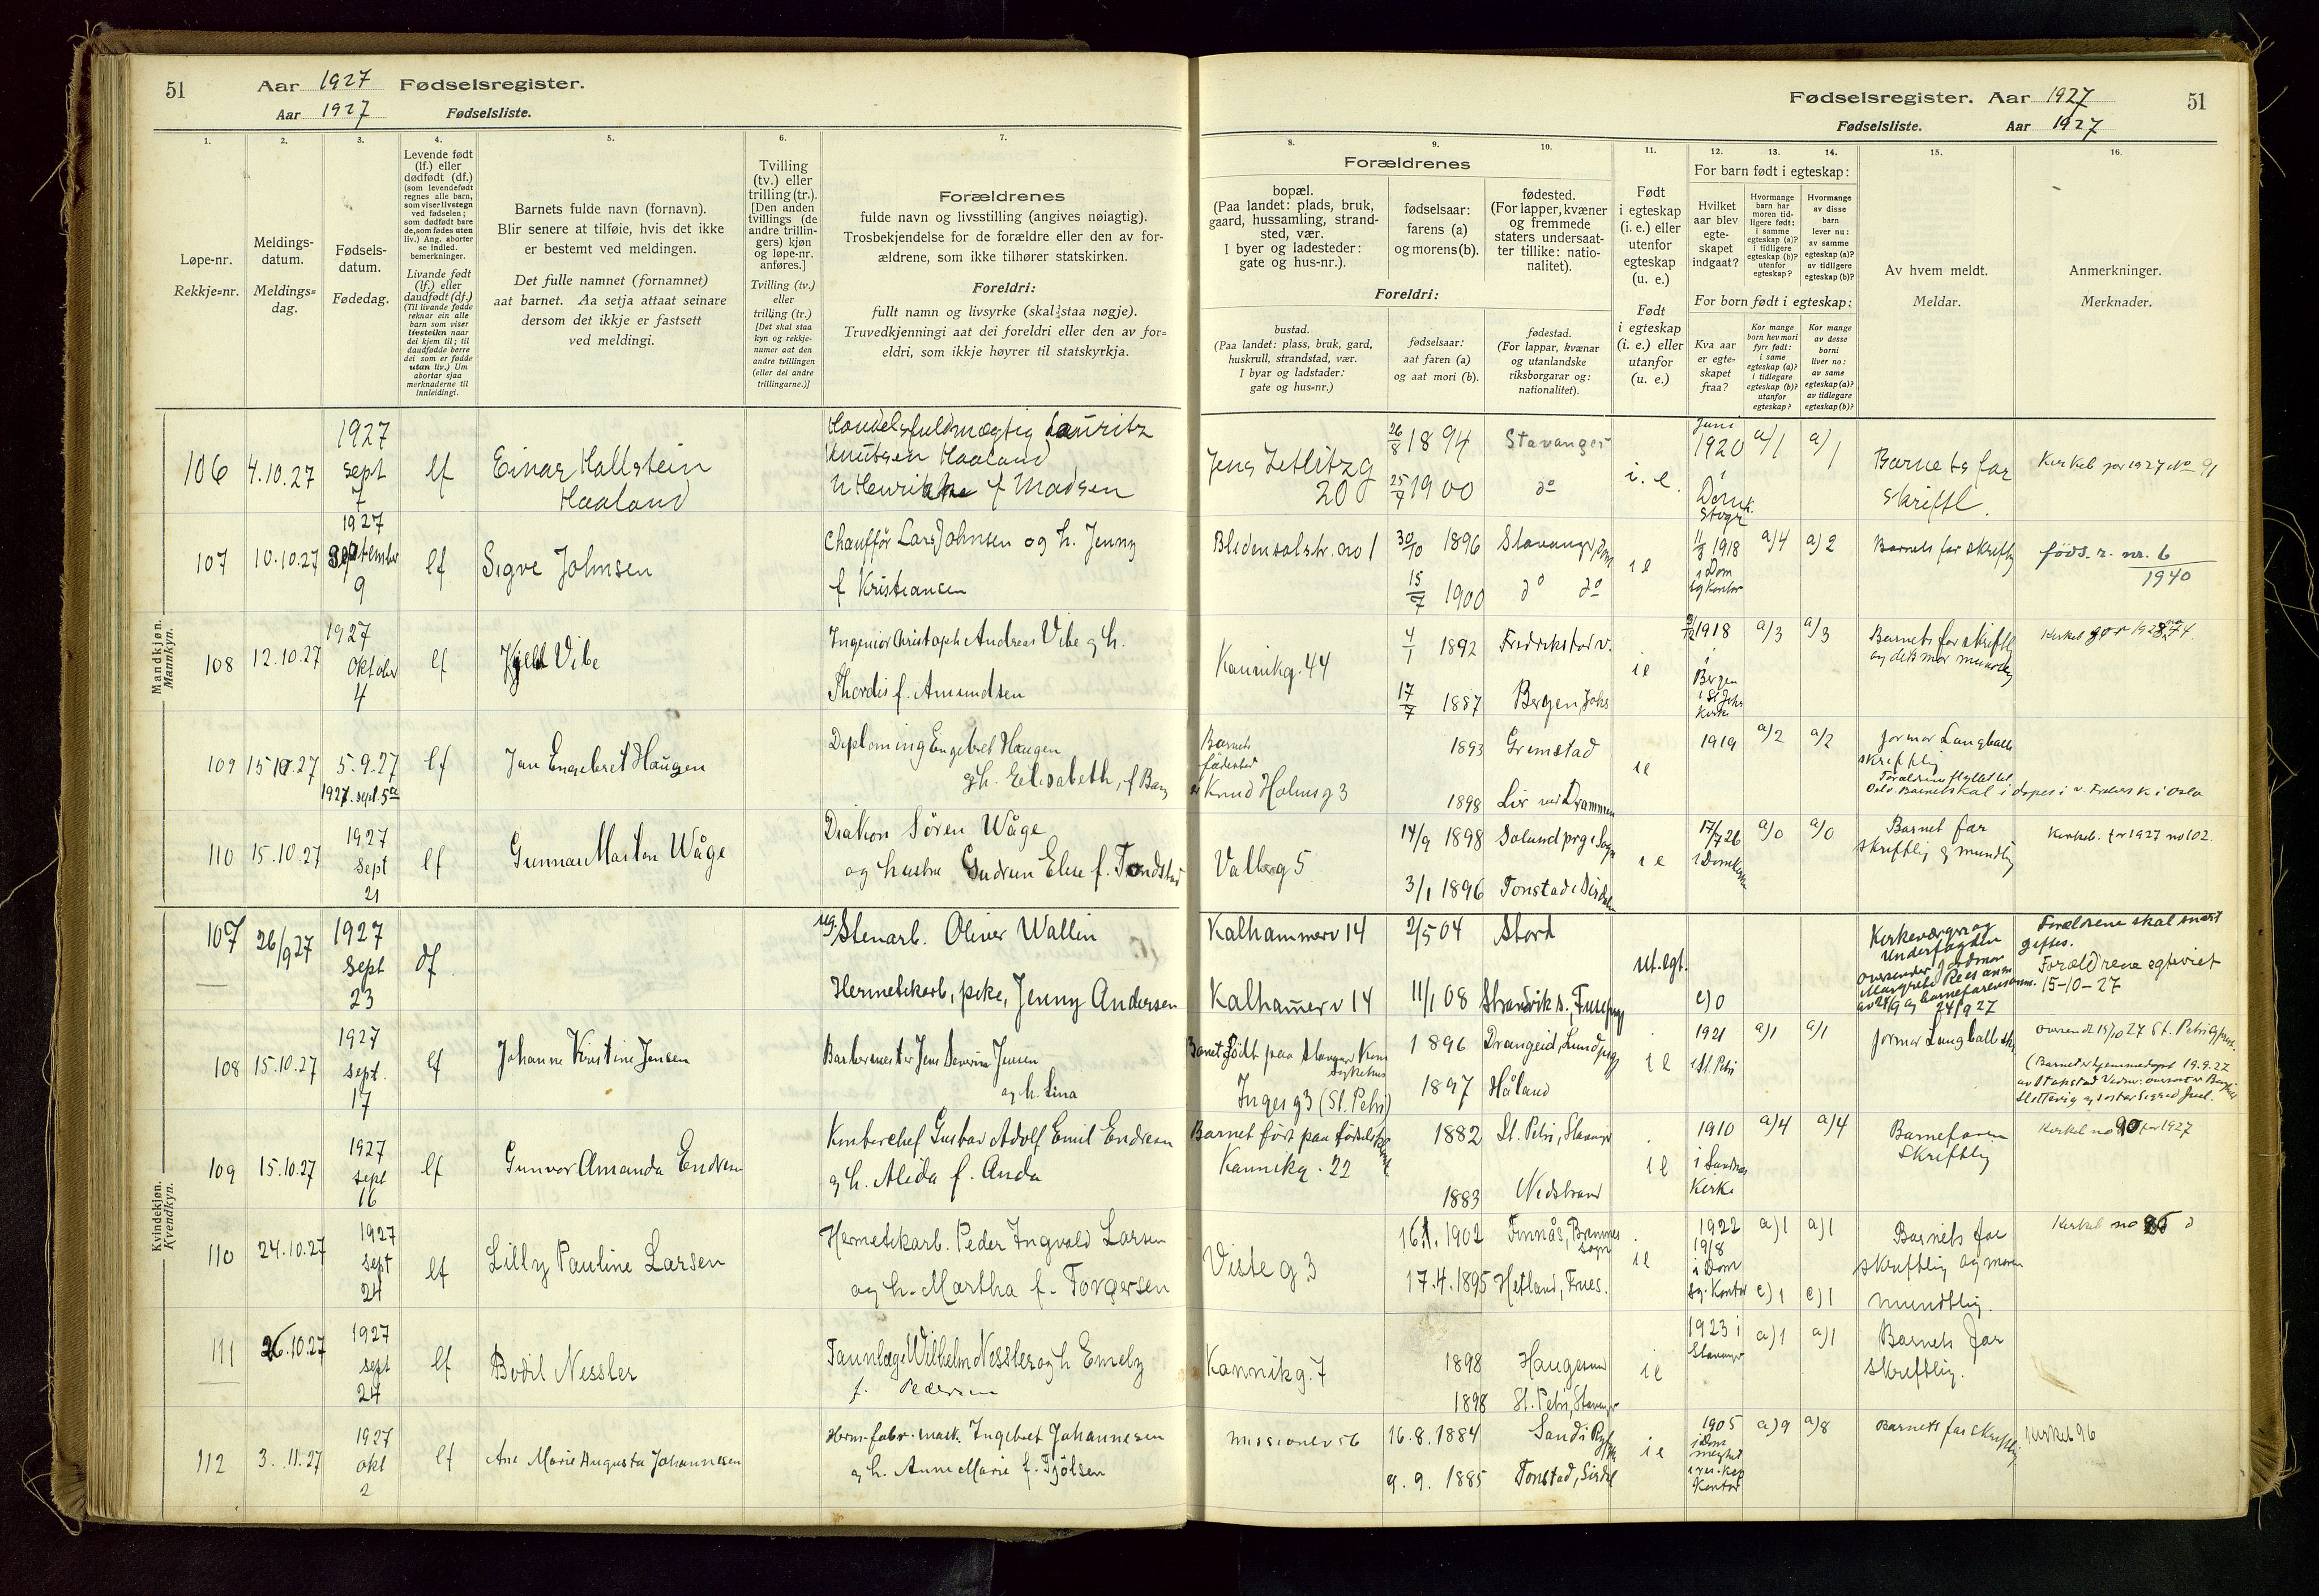 51
Aar 1927 Fødselsregister.
Aar 1927 Fødselsliste.
1.
Løpe-nr.
Rekkje=nr.
2.
Meldings-
datum.
Meldings=
dag.
3.
Fødsels-
datum.
Fødedag.
4.
Levende født
(lf.) eller
dødfødt (df.)
(som levendefødt
regnes alle barn,
som viser livstegn
ved fødselen;
som dødfødt bare
de, som fødes uten
liv.) Ang. aborter
se indled.
bemerkninger.
Livande født
(lf.) eller
daudfødt (df.)
(Til livande fødde
reknar ein alle
barn som viser
livsteikn naar
dei kjem til; til
daudfødde berre
dei som er fødde
utan liv.) Um
abortar sjaa
merknaderne til
innleidingi.
5.
Barnets fulde navn (fornavn).
Blir senere at tilføie, hvis det ikke
er bestemt ved meldingen.
Det fulle namnet (fornamnet)
aat barnet. Aa setja attaat seinare
dersom det ikkje er fastsett
ved meldingi.
6.
Tvilling
(tv.) eller
trilling (tr.).
[Den anden
tvillings (de
andre trillin-
gers) kjøn
og løpe-nr.
anføres.]
Tvilling (tv.)
eller
trilling (tr.)
[Det skal staa
kyn og rekkje-
numer aat den
andre tvillingen
(eller dei andre
trillingarne.)]
7.
Forældrenes
fulde navn og livsstilling (angives nøiagtig).
Trosbekjendelse for de forældre eller den av for-
ældrene, som ikke tilhører statskirken.
Foreldri:
fullt namn og livsyrke (skal staa nøgje).
Truvedkjenningi aat dei foreldri eller den av for=
eldri, som ikkje høyrer til statskyrkja.
Mandkjøn.
Mannkyn.
106 4.10.27 1927 sept 7 lf Einar Hallstein
Haaland
Handelsfuldmægtig Lauritz
Knutsen Haaland
h Henrikke f Madsen
107 10.10.27 1927 September 9 lf Sigve Johnsen
Chauffør Lars Johnsen og h. Jenny
f Kristiansen
108 12.10.27 1927 Oktober 4 lf Kjell Vibe
Ingeniør Christoph Andreas Vibe og h.
Thordis f. Amundsen
109 15.10.27 5.9.27 lf Jan Engebret Haugen
1927. sept. 5te
Diploming Engebret Haugen
og h. Elisabeth, f Bang
110 15.10.27 1927 Sept 21 lf Gunnar Marton Wåge
Diakon Sören Wåge
og hustru Gudrun Elise f. Tondstad
Kvindekjøn.
Kvendkyn.
107 26/9 27 1927 Sept 23 df
ug. Stenarb. Oliver Wallin
Hermetikarb, pike, Jenny Andersen
108 15.10.27 1927 Sept. 17 lf Johanne Kirstine Jensen
Barbermester Jens Severin Jensen
og h. Lina
109 15.10.27 1927 Sept 16 lf Gunvor Amanda Endresen
Kontorchef Gustav Adolf Emil Endresen
og h. Alida f. Anda
110 24.10.27 1927 Sept 24 lf Lilly Pauline Larsen
Hermetikarb. Peder Ingvald Larsen
og h. Martha f. Torgersen
111 26.10.27 1927 sept 24 lf Bodil Nessler
Tannlæge Wilhelm Nessler og h Emely
f. Pedersen
112 3.11.27 1927 okt 2 lf Ane Marie Augusta Johannesen
Herm.fabr.mask. Ingebret Johannesen
og h. Anne Marie f. Tjölsen
Fødselsregister. Aar 1927
51
Fødselsliste. Aar 1927
8.
Forældrenes
bopæl.
(Paa landet: plads, bruk,
gaard, hussamling, strand-
sted, vær.
I byer og ladesteder:
gate og hus-nr.).
Foreldri:
bustad.
(Paa landet: plass, bruk, gard,
huskrull, strandstad, vær.
I byar og ladstader:
gate og hus=nr.)
9.
fødselsaar:
farens (a)
og morens (b).
fødselsaar:
aat faren (a)
og aat mori (b).
10.
fødested.
(For lapper, kvæner
og fremmede
staters undersaat-
ter tillike: natio-
nalitet).
fødestad.
(For lappar, kvænar
og utanlandske
riksborgarar og:
nationalitet).
11.
Født
i egteskap
(i. e.) eller
utenfor
egteskap
(u. e.)
Født
i egteskap
(i. e.) eller
utanfor
(u. e.)
12. 13. 14.
For barn født i egteskap:
Hvilket
aar blev
egte-
skapet
indgaat?
Hvormange
barn har
moren tid-
ligere født:
i samme
egteskap (a)?
i tidligere
egteskap (b)?
utenfor
egteskap?
Hvormange
av disse
barn
lever nu:
av samme
egteskap (a)?
av tidligere
egteskap (b)?
For born født i egteskap:
Kva aar
er egte-
skapet
fraa?
Kor mange
born hev mori
fyrr født:
i same
egteskap (a)?
i tidlegare
egteskap (b)?
utanfor
egteskap?
Kor mange
av desse
borni
liver no:
av same
egteskap (a)?
av tidlegare
egteskap (b)?
15.
Av hvem meldt.
Meldar.
16.
Anmerkninger.
Merknader.
Jens Zetlitz g
20
26/8 1894 Stavanger
25/7 1900 do
i. e. Juni 1920 i Domk. Stvgr a/1 a/1
Barnets far
skriftl.
Kirkeb for 1927 No 91
Blidensolstr. no 1
30/10 1896 Stavanger, Dom
15/7 1900 do do
i e 11/8 1918 i Dom sg kontor a/4 a)2
Barnets far skriftlig
føds. r. nr. 6
1940
Kannikg. 44
4/1 1892 Fredrikstad v.
17/7 1887 Bergen, Johs
i e 1918 i Bergen i St Johs Kirke a/3 a/3
Barnets far skriftlig
og dets mor muntlig
Kirkeb for 1928 no 74.
Barnets
fødested
er Knud Holms g 3
1893 Grimstad
1898 Lier ved Drammen
i e 1919 a/2 a/2
Jormor Langballe
skriftlig
Forældrene flyttet til
Oslo. Barnet skal i døpes i v. Frelsers K i Oslo
Valbergg 5
14/9 1898 Solund prg i Sogn
3/1 1896 Tonstad i Sirdalen
i e 17/7 26 i Domkirken a/0 a/0
Barnet far
skriftlig og mundtlig
Kirkeb. for 1927 no 102.
Kalhammerv 14
2/5 04 Stord
Kalhamerv 14
11/1 08 Strandvik s., Fuse prg
ut. egt. c)0
Kirkeværge og
Underfogden
oversender jordmor
Margrethe
av 24/9 og barnefarens anm.
24/9 27
Forældrene skal snart
giftes.
Forældrene egteviet
15-10-27
Barnet født paa Stavanger Kom
sykehus
Inges g 3 (St. Petri)
1896 Drangeid, Lund prg
1897 Håland
i e 1921 i St. Petri a)1 a/1
Jormor Langballe sk.
Oversendt 15/10 27 St. Petri
(Barnet er hjemmedøpt 19.9.27
Barnet født paa fødselshjem
Kannikg. 22
1882 St. Petri, Stavanger
1883 Nedstrand
i e 1910 i Sandnes Kirke a)4 a)4
Barnefaren
Skriftlig
Kirkeb no 90 for 1927
Viste g 3
16.1.1902 Finnås, Bremnes
sogn
17.4.1895 Hetland, Frues.
i e 1922 19/8 i Dom sg. Kontor a)1 a)1
c)1 c)1
Barnets far
skriftlig og moren
mundtlig.
Kirkeb no 86
Kannikg. 7
1898 Haugesund
1898 St. Petri, Stavanger
i e 1923 i Stavanger a)1 a)1
Barnets far
skriftlig.
Missionsv 56
16.8.1884 Sand i Ryfylke
9.9.1885 Tonstad, Sirdal
i e 1905 i Dom Kontor a)9 a)8
Barnets far skriftlig
Kirkeb 96